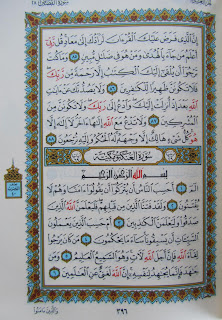 سورة القصص ٢٨
إِنَّ ٱلَّذِى فَرَضَ عَلَيْكَ ٱلْقُرْءَانَ لَرَآدُّكَ إِلَىٰ مَعَادٍ قُل رَّبِّىٓ
أَعْلَمُ مَن جَآءَ بِٱلْهُدَىٰ وَمَنْ هُوَ فِى ضَلَٰلٍ مُّبِينٍ ٨٥ وَمَا كُنتَ
تَرْجُوٓا۟ أَن يُلْقَىٰٓ إِلَيْكَ ٱلْكِتَٰبُ إِلَّا رَحْمَةً مِّن رَّبِّكَ
فَلَا تَكُونَنَّ ظَهِيرًا لِّلْكَٰفِرِينَ ٨٦ وَلَا يَصُدُّنَّكَ عَنْ ءَايَٰتِ
ٱللَّهِ بَعْدَ إِذْ أُنزِلَتْ إِلَيْكَ وَٱدْعُ إِلَىٰ رَبِّكَ وَلَا تَكُونَنَّ مِنَ
ٱلْمُشْرِكِينَ ٨٧ وَلَا تَدْعُ مَعَ ٱللَّهِ إِلَٰهًا ءَاخَرَ لَآ إِلَٰهَ إِلَّا
هُوَ كُلُّ شَىْءٍ هَالِكٌ إِلَّا وَجْهَهُۥ لَهُ ٱلْحُكْمُ وَإِلَيْهِ تُرْجَعُونَ ٨٨
سورة العنكبوت مكية
بِسْمِ ٱللَّهِ ٱلرَّحْمَٰنِ ٱلرَّحِيمِ
الٓمٓ ١ أَحَسِبَ ٱلنَّاسُ أَن يُتْرَكُوٓا۟ أَن يَقُولُوٓا۟ ءَامَنَّا وَهُمْ لَا
يُفْتَنُونَ ٢ وَلَقَدْ فَتَنَّا ٱلَّذِينَ مِن قَبْلِهِمْ فَلَيَعْلَمَنَّ ٱللَّهُ ٱلَّذِينَ
صَدَقُوا۟ وَلَيَعْلَمَنَّ ٱلْكَٰذِبِينَ ٣ أَمْ حَسِبَ ٱلَّذِينَ يَعْمَلُونَ
ٱلسَّيِّـَٔاتِ أَن يَسْبِقُونَا سَآءَ مَا يَحْكُمُونَ ٤ مَن كَانَ يَرْجُوا۟
لِقَآءَ ٱللَّهِ فَإِنَّ أَجَلَ ٱللَّهِ لَءَاتٍ وَهُوَ ٱلسَّمِيعُ ٱلْعَلِيمُ ٥ وَمَن
جَٰهَدَ فَإِنَّمَا يُجَٰهِدُ لِنَفْسِهِۦٓ إِنَّ ٱللَّهَ لَغَنِىٌّ عَنِ ٱلْعَٰلَمِينَ ٦
٣٩٦